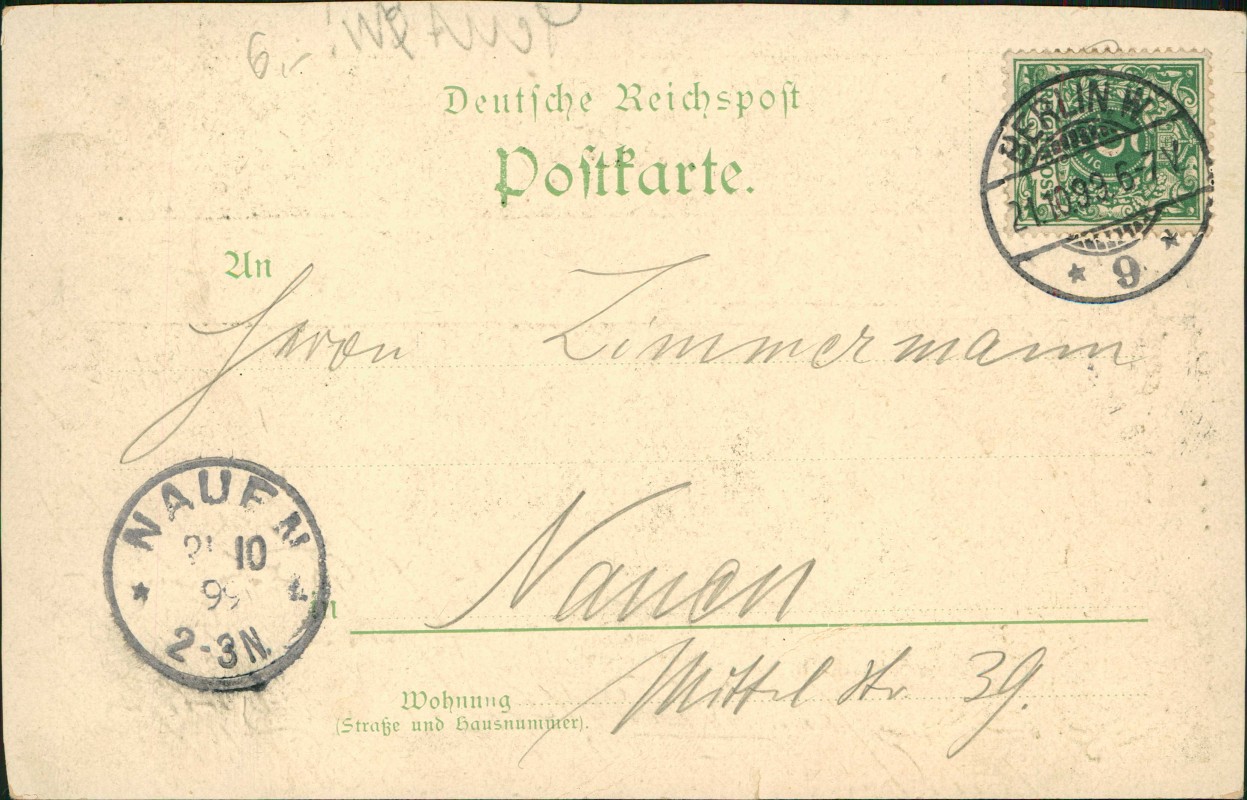 6.-
Deutsche Reichspost
Postkarte.
BERLIN W.
21.10.99. 6-7V.
* 9 *
An
Herrn Zimmermann
NAUEN
21 10
99
2-3N.
in Nauen
Mittel Str 39.
Wohnung
(Straße und Hausnummer).